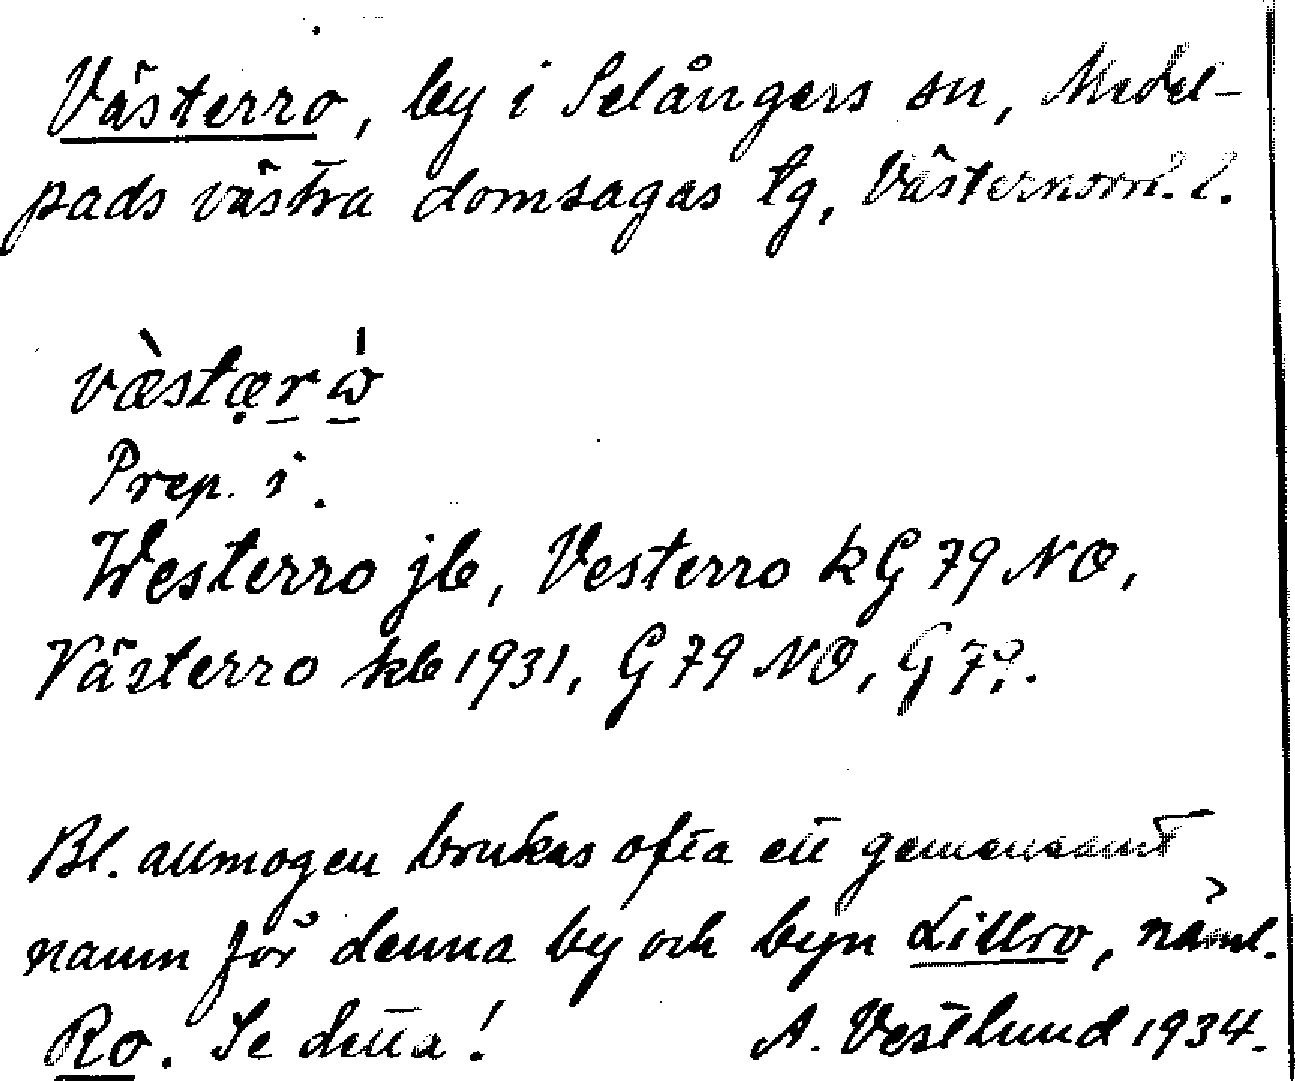 Västerro, by i Selångers sn, Medel-
pads västra domsagas tg, Västernorrl. l.
væ̀stær
Prep. i.
Westerro jb, Vesterro kG 79 NO,
Västerro kb 1931, G 79 NO, G
Bl. allmogen brukas ofta ett gemensamt
namn för denna by och byn Lillro, näml.
Ro. Se detta! A. Vestlund 1934.